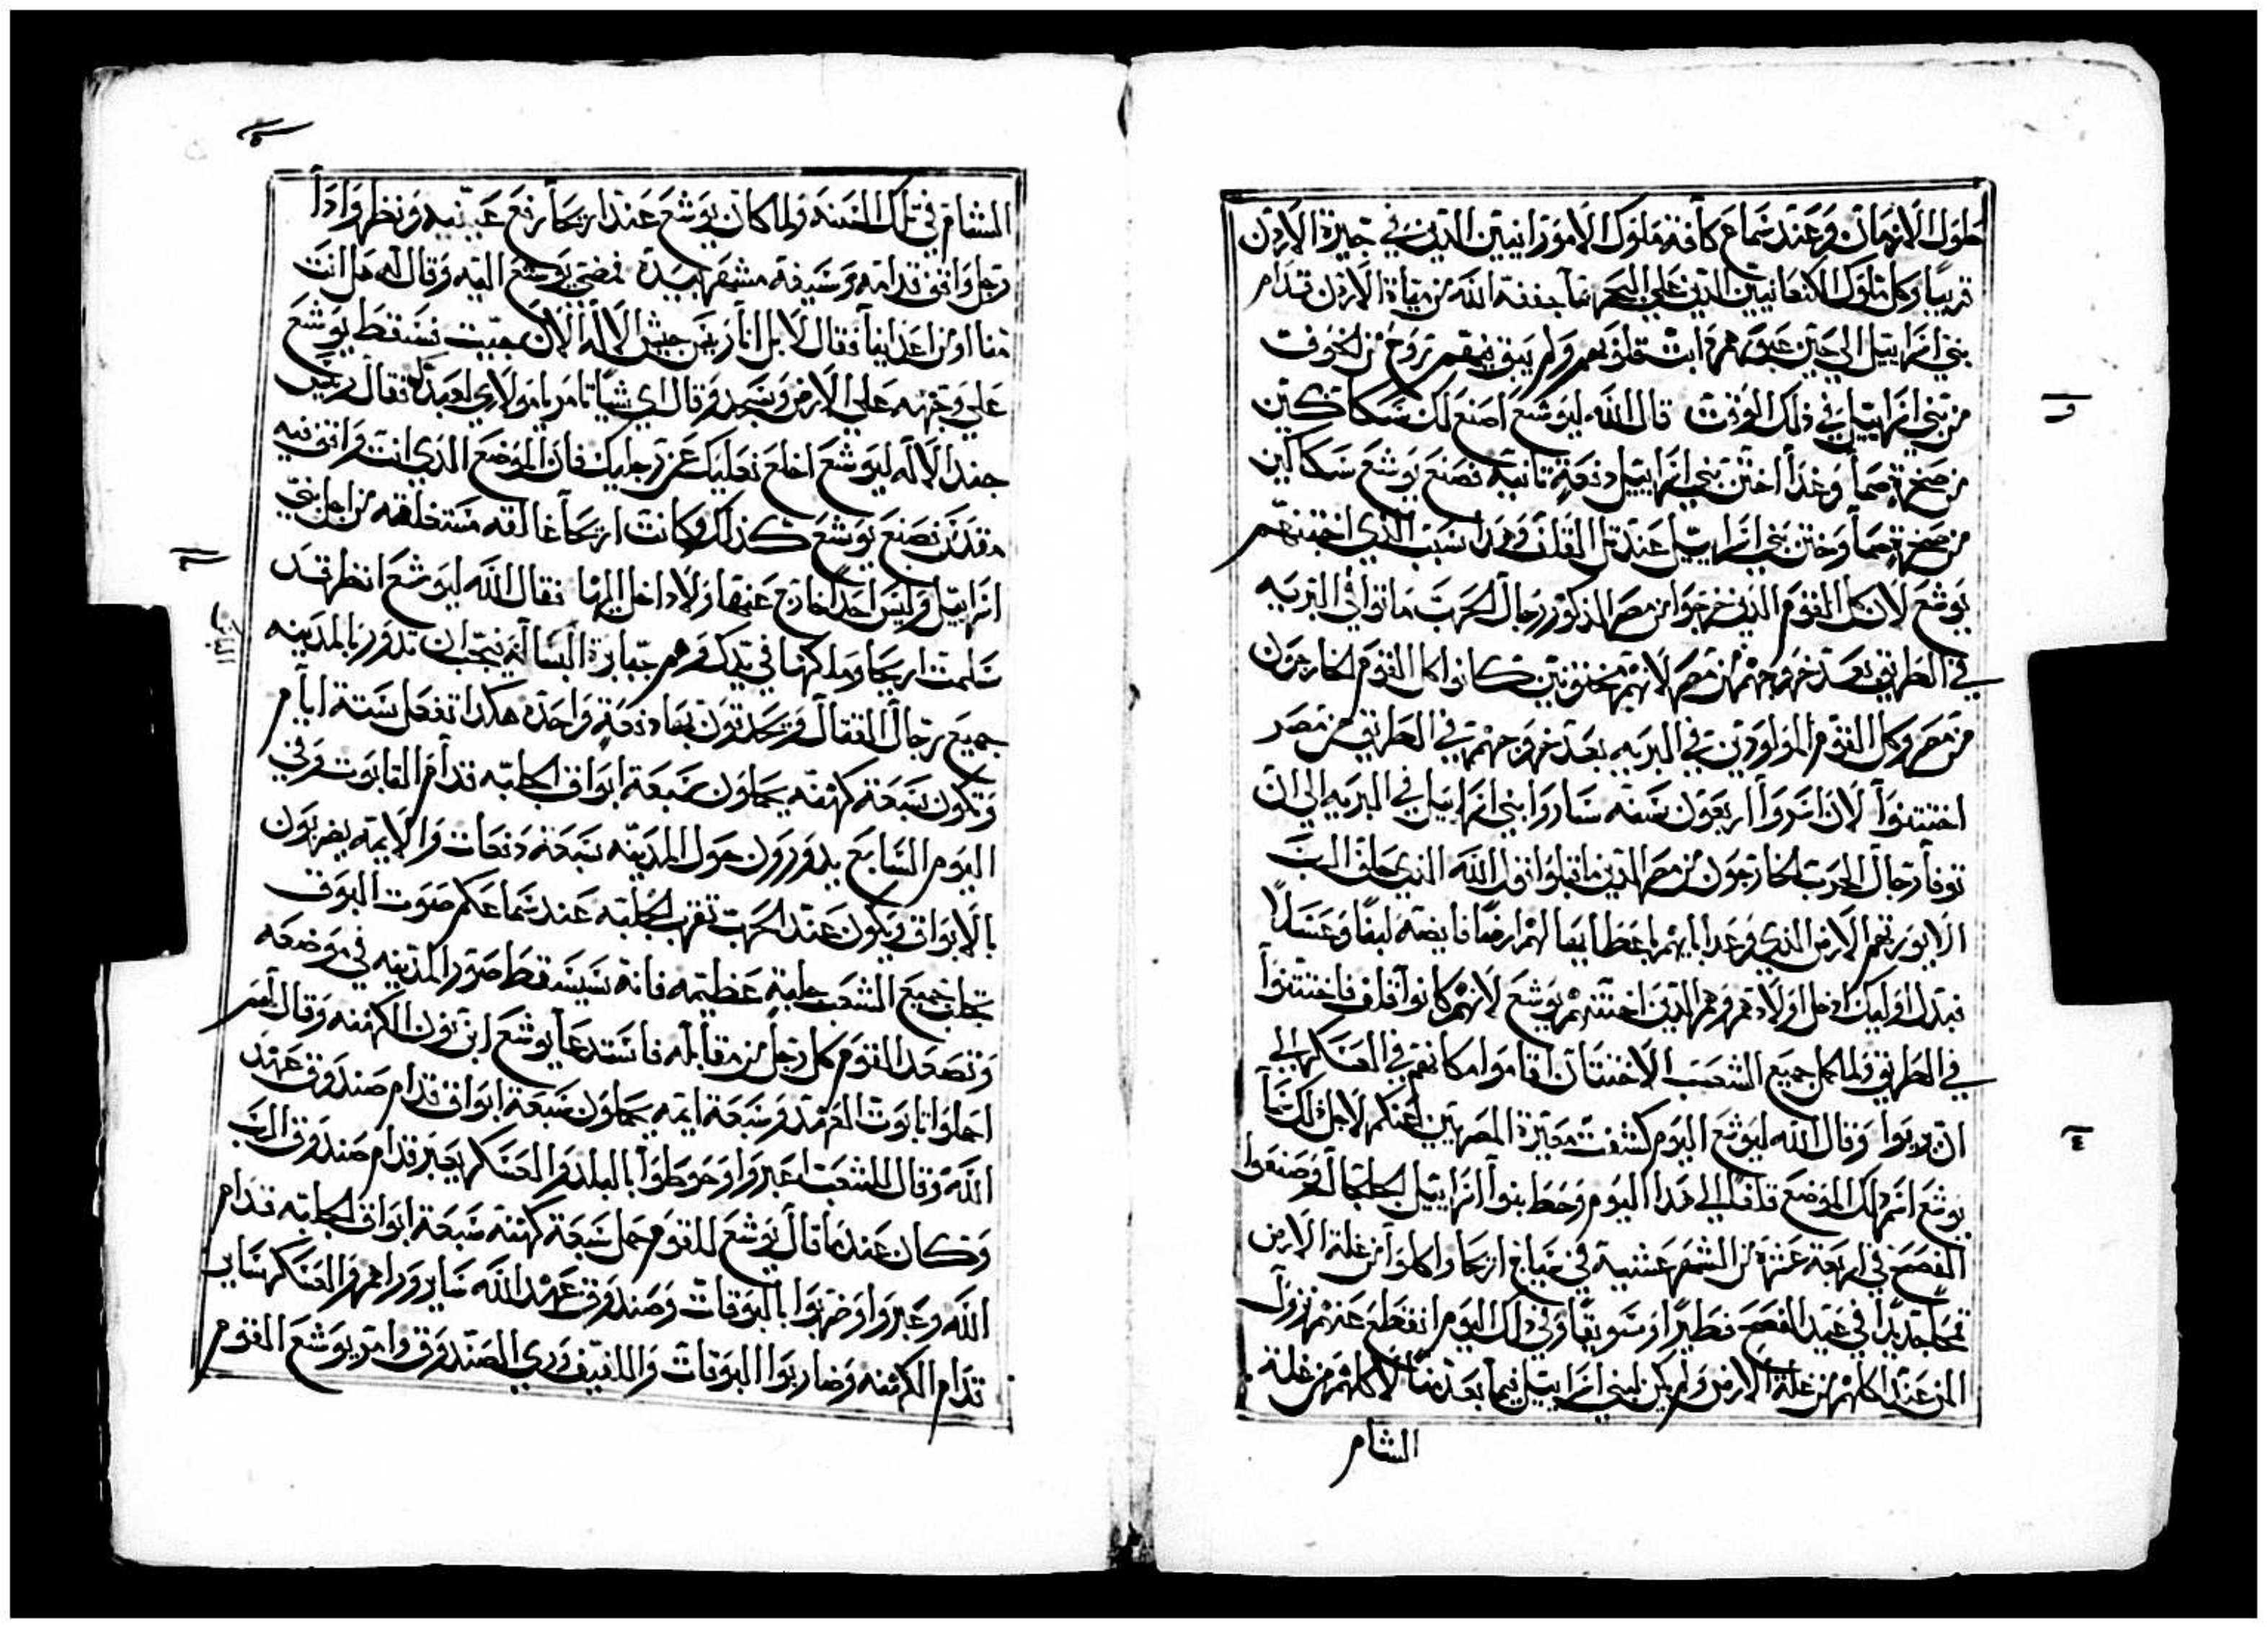 طول الازمان وعند سماع كافة ملوك الاموزانيين الدين في جيزة الاردن
قريبا وكل ملوك الكنعانيين الدين على البحر بما جففه الله من مياة الاردن قدام
بني اسراييل الى حين عبورهم دابت قلوبهم ولم يبق فيهم روح من الخوف
من بني اسراييل في دلك الوقت قال الله ليوشع اصنع لك سكاكين
من صخرة صما وغدا اختن بني اسراييل دفعة تانية فصنع يوشع سكاكين
من صخرة صما وختن بني اسراييل عند تل القلف وهدا سبب الدي اختنهم
يوشع لان كل القوم الدين خرجوا من مصر الدكور رجال الحرب ماتوا في البرية
في الطريق بعد خروجهم من مصر لانهم مختونين كانوا كل القوم الخارجون
من مصر وكل القوم المولودين في البرية بعد خروجهم في الطريق من مصر
اختتنوا لان امروا اربعون سنة ساروا بني اسراييل في البرية الى ان
توفا رجال الحرب الخارجون من مصر الدين ما قبلوا قول الله الدي حلف الرب
الا يوريهم الارض الدي وعد اباهم باعطايها لهم ارضا فايضة لبنا وعسلا
فبدل اوليك ادخل اولادهم وهم الدين اختنهم يوشع لانهم كانوا قلف فاختتنوا
في الطريق ولما كمل جميع الشعب الاختتان اقاموا مكانهم في العسكر الى
ان بروا وقال الله ليوشع اليوم كشفت معيرة المصريين عنكم لاجل دلك سما
يوشع اسم دلك الموضع قلقال الى هدا اليوم وحط بنوا اسراييل الجلجال وصنعوا
الفصح في اربعة عشرة من الشهر عشية في ضياع اريحا واكلوا من غلة الارض
قمحا جديدا في عيد الفصح فطيرا وسويقا وفي دلك اليوم انقطع عنهم نزول
المن عند اكلهم من غلة الارض ولم يكن لبني اسراييل فيما بعد منا لاكلهم من غلة
الشام
الشام في تلك السنة ولما كان يوشع عند اريحا رفع عينيه ونظر وادا
رجل واقف قدامه وسيفه مشهر بيده فمضى يوشع اليه وقال له هل انت
منا او من اعداينا فقال لا بل انا ريس جيش الاله الان جيت فسقط يوشع
على وجهه على الارض وسجد وقال اي شيا تامر يا مولاي لعبدك فقال ريس
جند الاله ليوشع اخلع نعليك عن رجليك فان الموضع الدي انت واقف فيه
مقدس فصنع يوشع كدلك وكانت اريحا غالقة مستغلقة من اجل بني
اسراييل وليس احد لخارج عنها ولا داخل اليها فقال الله ليوشع انظر قد
سلمت اريحا وملكها في يدك وهم جبابرة البسالة فيجب ان تدور بالمدينة
جميع رجال القتال وتحدقون بها دفعة واحدة هكدا تفعل ستة ايام
وتكون سبعة كهنة يحملون سبعة ابواق الجلبة قدام التابوت وفي
اليوم السابع يدورون حول المدينة سبعة دفعات والايمة يضربون
بالابواق ويكون عند الحرب تقرب الجلبة عند سماعكم صوت البوق
تجلب جميع الشعب جلبة عظيمة فانه سيسقط صور المدينة في موضعه
وتصعد القوم كل رجل من مقابله فاستدعا يوشع ابن نون الكهنة وقال لهم
احملوا تابوت العهد وسبعة ايمة يحملون سبعة ابواق قدام صندوق عهد
الله وقال للشعب اعبروا وحوطوا بالبلد والعسكر يعبر قدام صندوق الرب
وكان عند ما قال يوشع للقوم حمل سبعة كهنة سبعة ابواق الجلبة قدام
الله وعبروا وضربوا بالبوقات وصندوق عهد الله ساير وراهم والعسكر ساير
قدام الكهنة وضاربوا البوقات واللفيف وري الصندوق وامر يوشع القوم